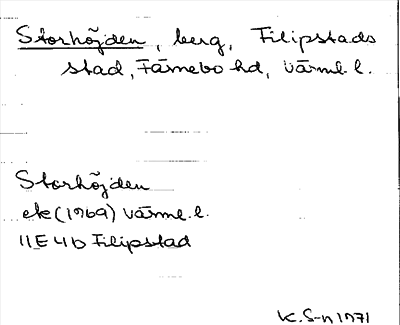 Storhöjden, berg, Filipstads
stad, Färnebo hd, Värml. l.
Storhöjden
ek (1969) Värml. l.
11E 4b Filipstad
K. S-n 1971